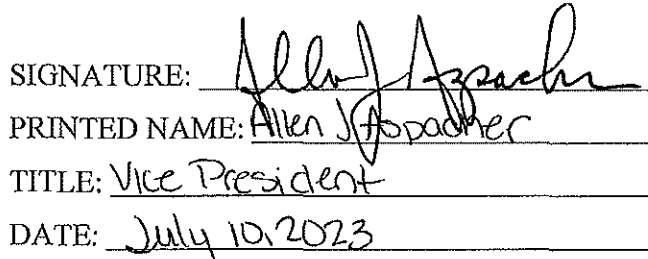 SIGNATURE: Allen J Aspacher
PRINTED NAME: Allen J Aspacher
TITLE: Vice President
DATE: July 10, 2023